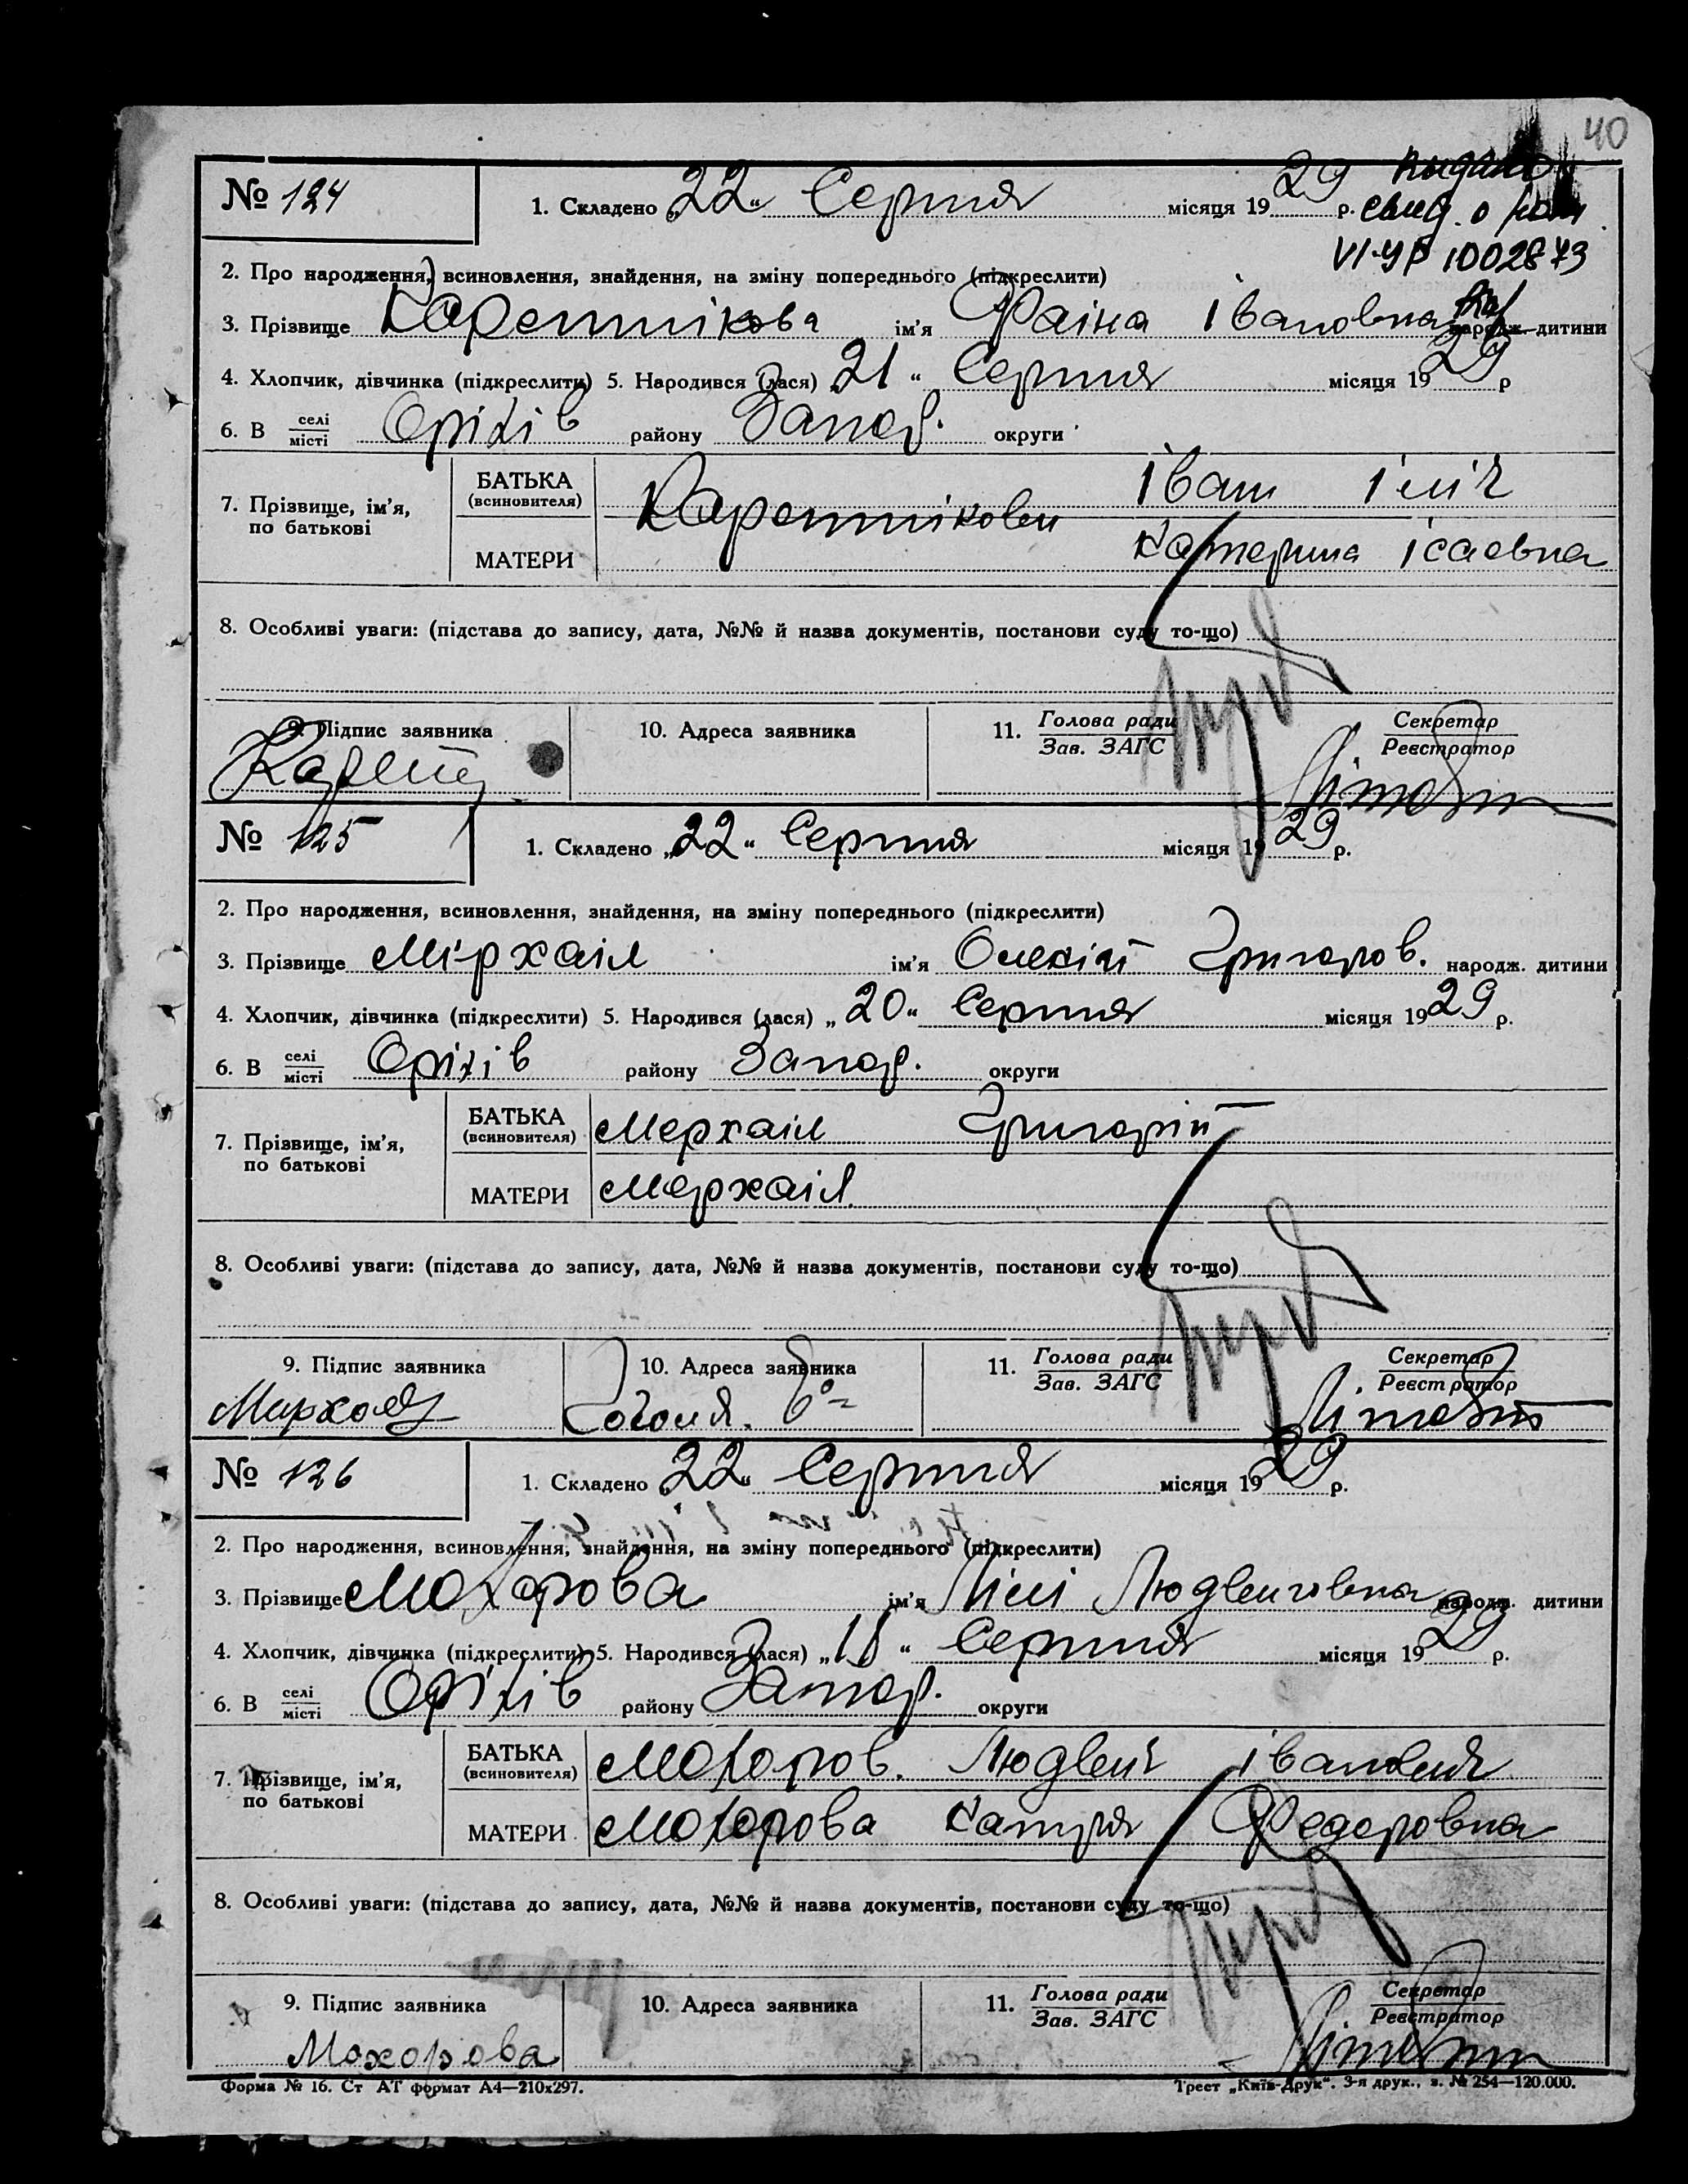 40
№ 124
1. Складено „22“ Серпня місяця 1929 р.
свид. о
VI-УР 1002873
2. Про народження, всиновлення, знайдення, на зміну попереднього (підкреслити)
3. Прізвище Каретнікова ім’я Фаіна Івановна народж. дитини
4. Хлопчик, дівчинка (підкреслити) 5. Народився (лася) „21“ Серпня місяця 1929 р
6. В селі місті Оріхів району Запор. округи
7. Прізвище, ім’я, по батькові
БАТЬКА (всиновителя) Іван Іліч
Каретнікови
МАТЕРИ Катерина Ісаєвна
8. Особливі уваги: (підстава до запису, дата, №№ й назва документів, постанови суду то-що)
9. Підпис заявника 10. Адреса заявника 11. Голова ради Зав. ЗАГС Секретар Реєстратор
№ 125
1. Складено „22“ Серпня місяця 1929 р.
2. Про народження, всиновлення, знайдення, на зміну попереднього (підкреслити)
3. Прізвище Мірхаіл ім’я Олексій Григоров. народж. дитини
4. Хлопчик, дівчинка (підкреслити) 5. Народився (лася) „20“ Серпня місяця 1929 р.
6. В селі місті Оріхів району Запор. округи
7. Прізвище, ім’я, по батькові
БАТЬКА (всиновителя) Мерхаіл Григорій
МАТЕРИ Мерхаіл.
8. Особливі уваги: (підстава до запису, дата, №№ й назва документів, постанови суду то-що)
9. Підпис заявника 10. Адреса заявника 11. Голова ради Зав. ЗАГС Секретар Реєстратор
Гоголя.
№ 126
1. Складено „22“ Серпня місяця 1929 р.
2. Про народження, всиновлення, знайдення, на зміну попереднього (підкреслити)
3. Прізвище Мохорова ім’я Лілі Людвиговна народж. дитини
4. Хлопчик, дівчинка (підкреслити) 5. Народився (лася) „18“ Серпня місяця 1929 р.
6. В селі місті Оріхів району Запор. округи
7. Прізвище, ім’я, по батькові
БАТЬКА (всиновителя) Мохоров. Людвиг Іванович
МАТЕРИ Мохорова Катря Федоровна
8. Особливі уваги: (підстава до запису, дата, №№ й назва документів, постанови суду то-що)
9. Підпис заявника 10. Адреса заявника 11. Голова ради Зав. ЗАГС Секретар Реєстратор
Мохорова
Форма № 16. Ст АТ формат А4—210х297. Трест „Київ-Друк“. 3-я друк., з. № 254—120.000.